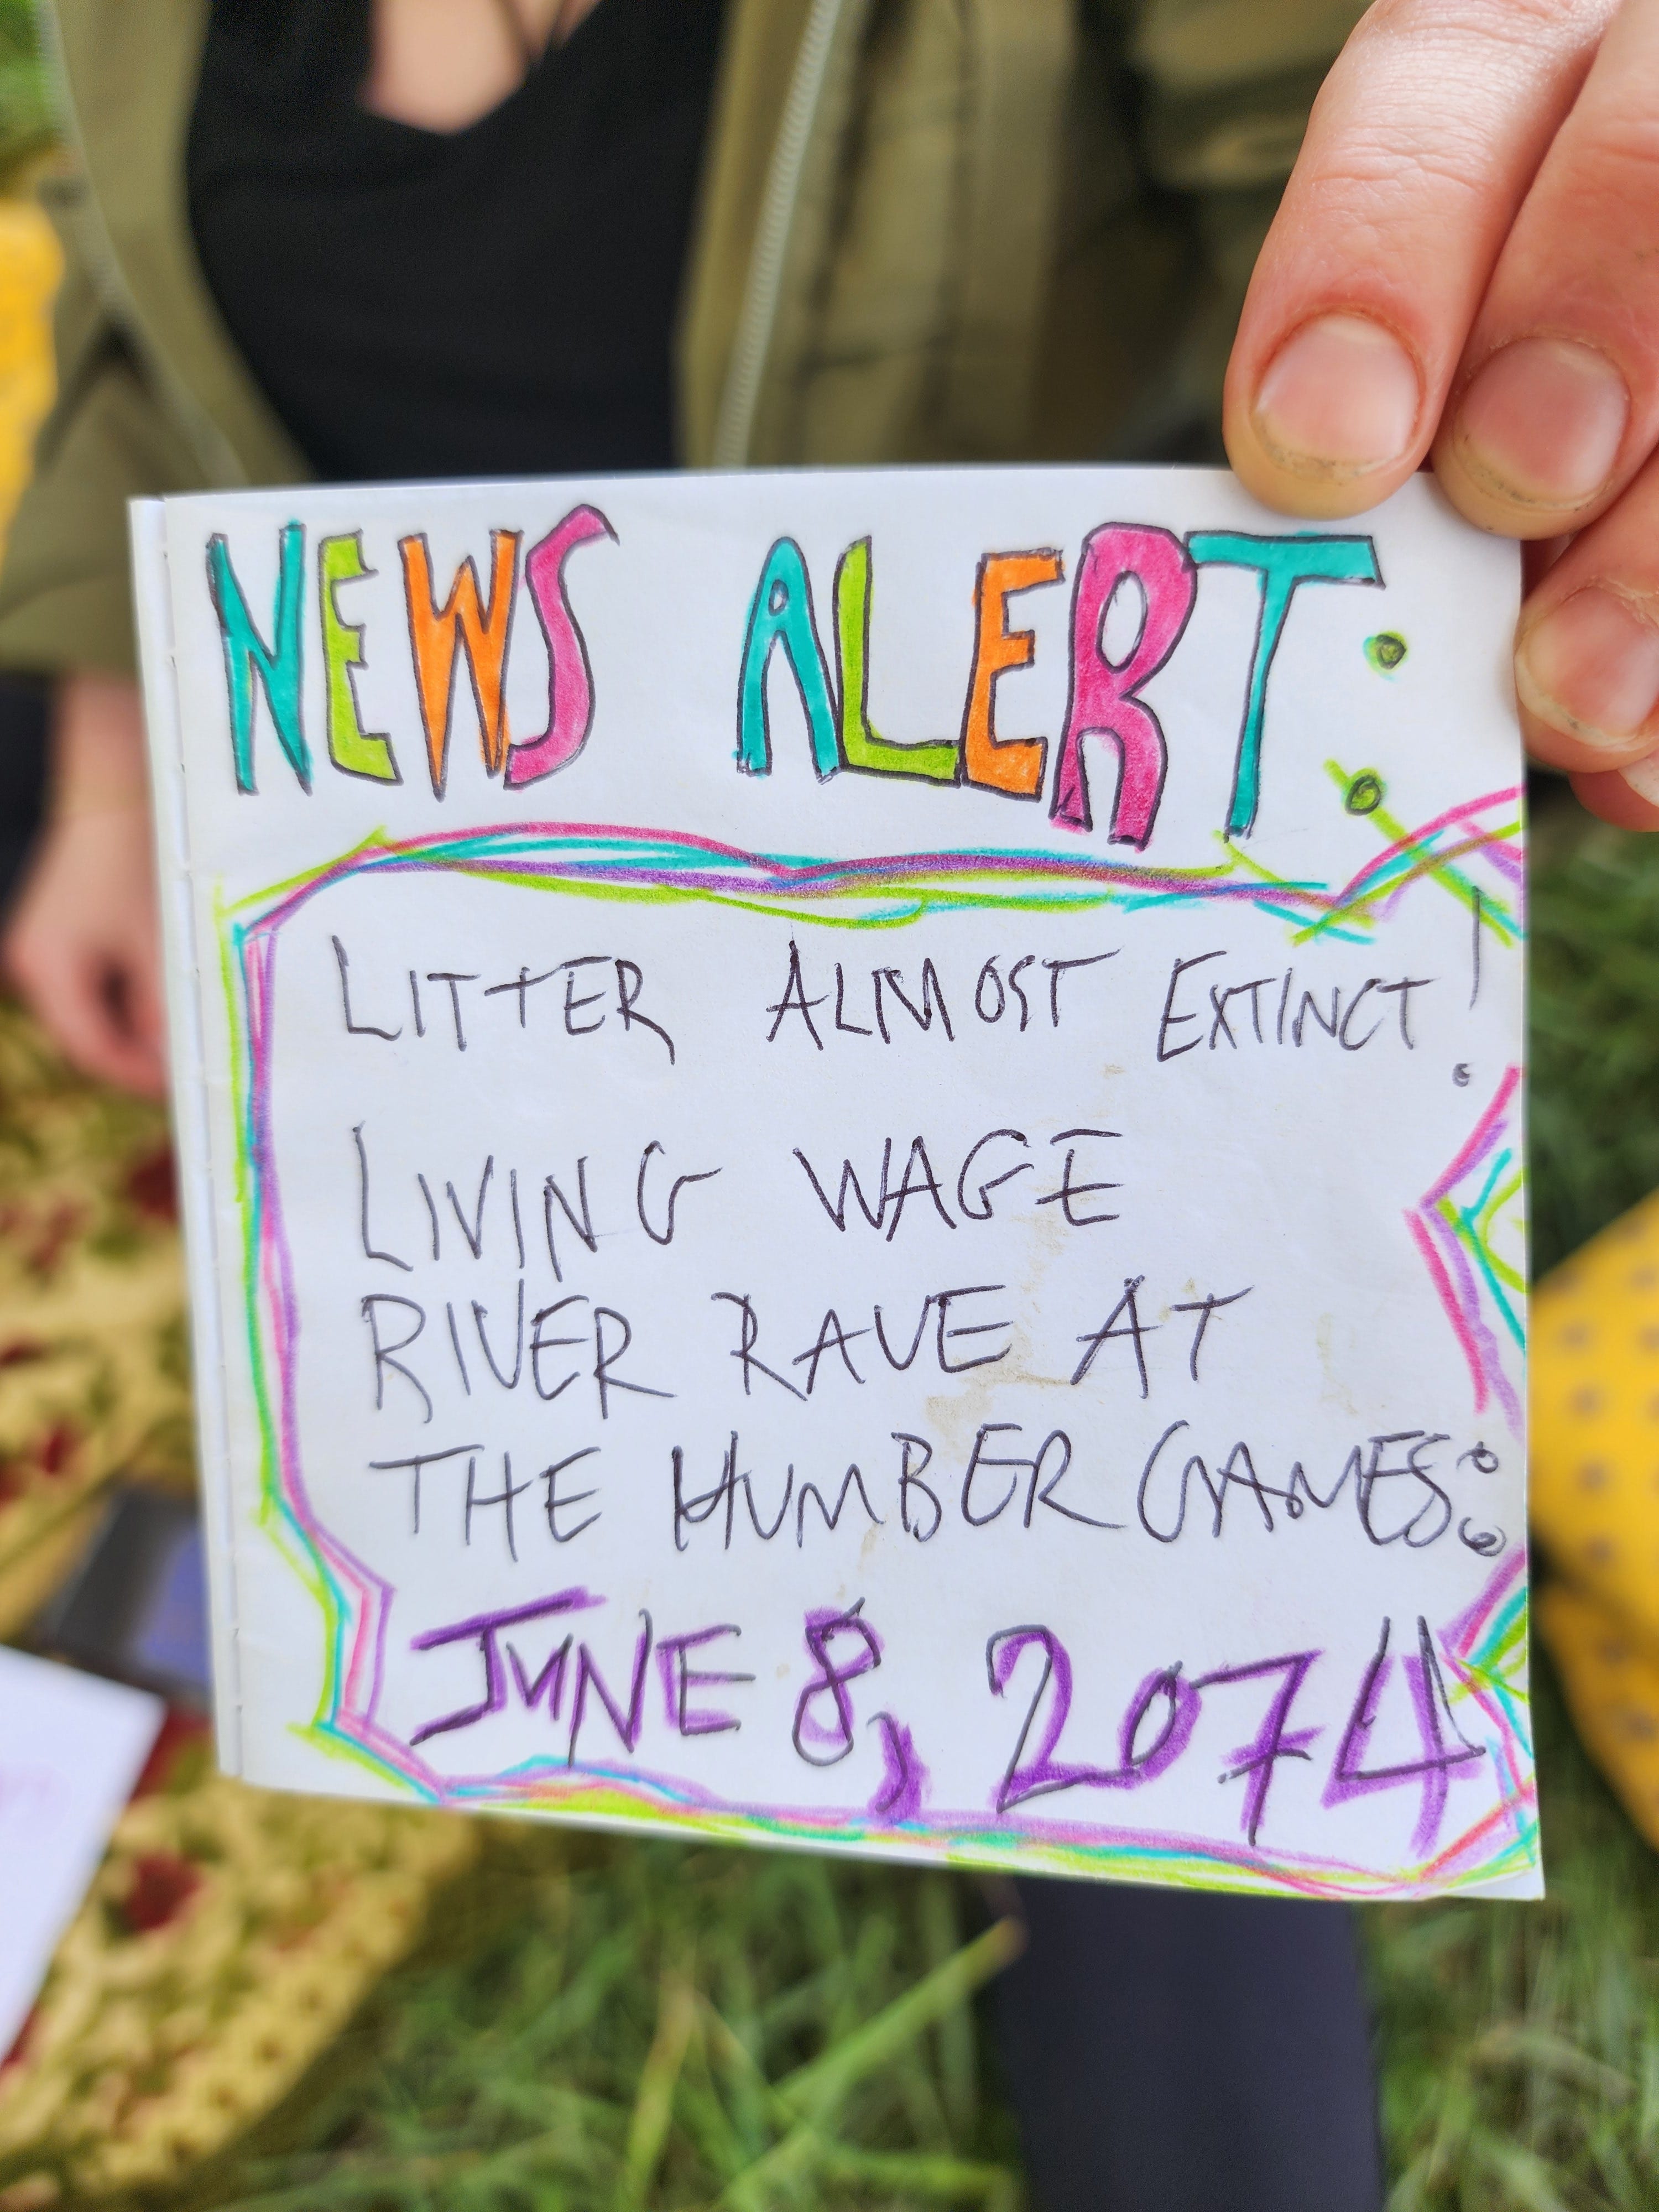 NEWS ALERT:
LITTER ALMOST EXTINCT!
LIVING WAGE
RIVER RAVE AT
THE HUMBER GAMES:
JUNE 8, 2074